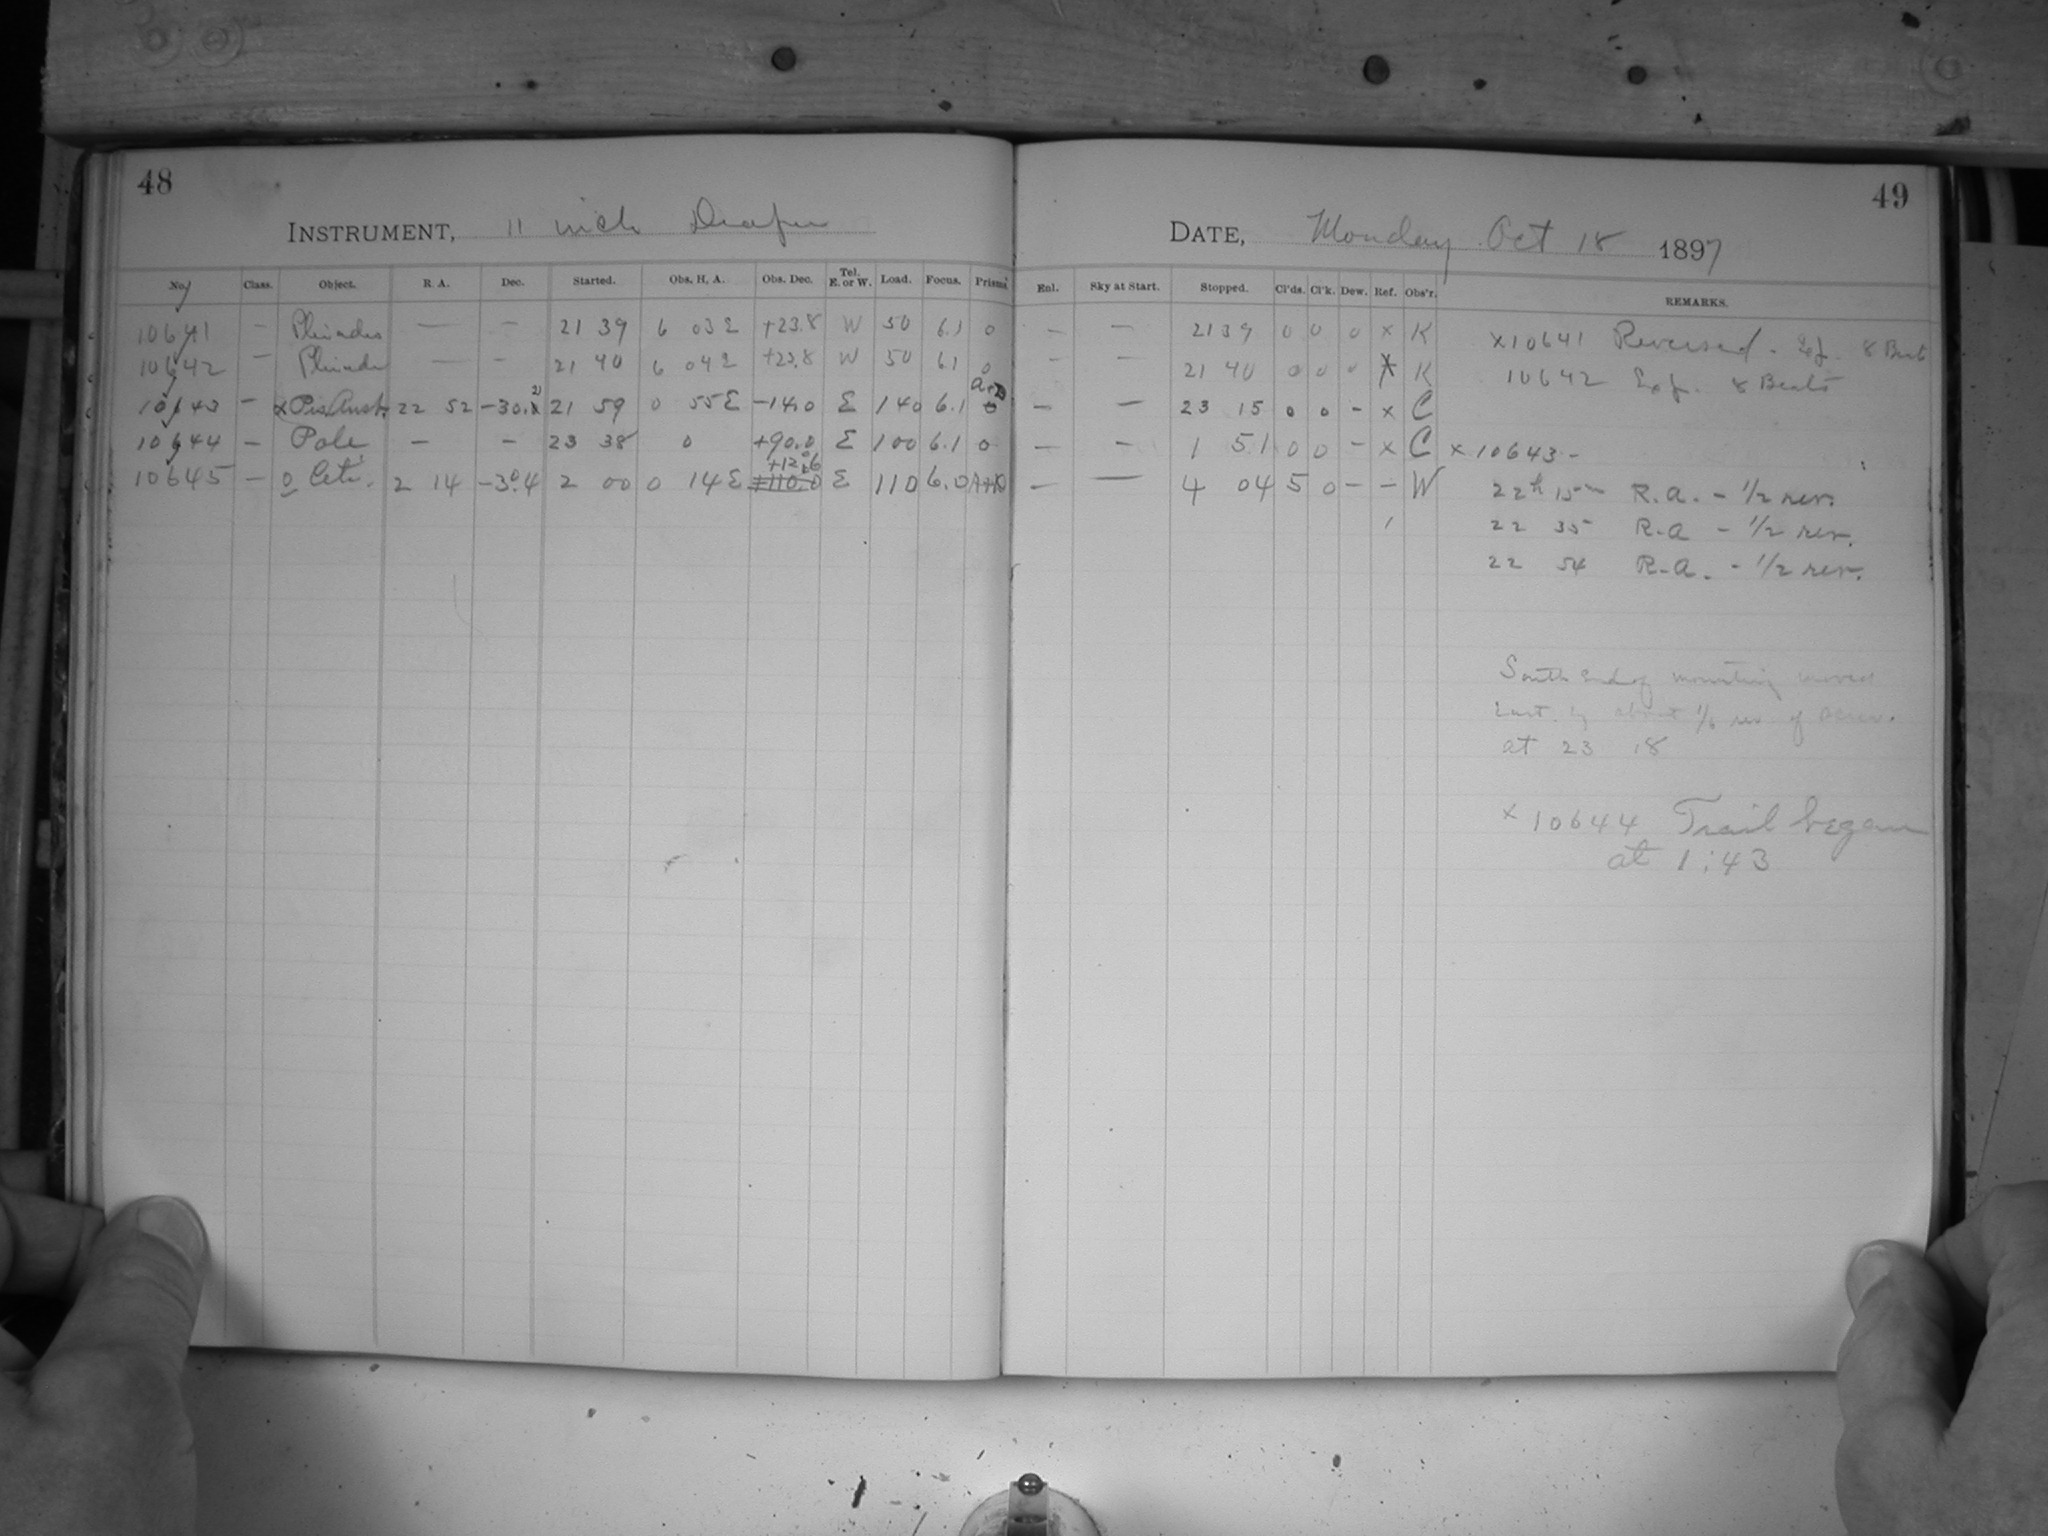 48
INSTRUMENT, 11 inch Draper
No. Class. Object. R. A. Dec. Started. Obs. H. A. Obs. Dec. Tel. E. or W. Load. Focus. Prisms
10641 — Pleiades — — 21 39 6 03 E +23.8 W 50 6.1 0
10642 — Pleiades — — 21 40 6 04 E +23.8 W 50 6.1 0
10643 — α Pis. Aust. 22 52 -30. 21 59 0 55 E -14.0 E 140 6.1
10644 — Pole — — 23 38 0 +90.0 E 100 6.1 0
10645 — o Ceti. 2 14 -3.4 2 00 0 14 E +12.6 E 110 6.0
49
DATE, Monday Oct 18 1897
Enl. Sky at Start. Stopped. Cl'ds. Cl'k. Dew. Ref. Obs'r. REMARKS.
— — 21 39 0 0 0 x K x10641 Reversed. 8 Beats
— — 21 40 0 0 0 x K 10642 8 Beats
— — 23 15 0 0 - x C
— — 1 51 0 0 - x C x 10643 -
— — 4 04 5 0 - - W 22h 15m R.A. - 1/2 rev.
22 35 R.A - 1/2 rev.
22 54 R.A. - 1/2 rev.
South end of mounting moved
East by about 1/6 rev. of screw.
at 23 18
x 10644 Trail began
at 1:43